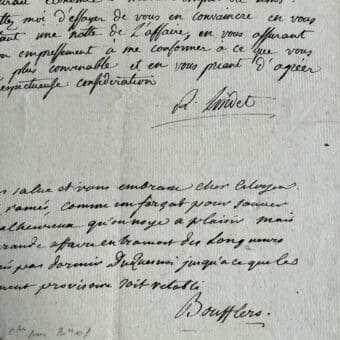 moi d'essayer de vous en convaincre en vous
une notte de L'affaire, en vous assurant
empressement a me conformer a ce que vous
plus convenable et en vous priant d'agréer
respectueuse consideration
R. Lindet
salue et vous embrasse cher Citoyen
ramé, comme un forçat pour sauver
malheureux qu'on noye a plaisir mais
grande affaire en trainant des Longueurs
pas dormir Duquesnoi jusqu'a ce que le
provisoire soit retabli
Boufflers.